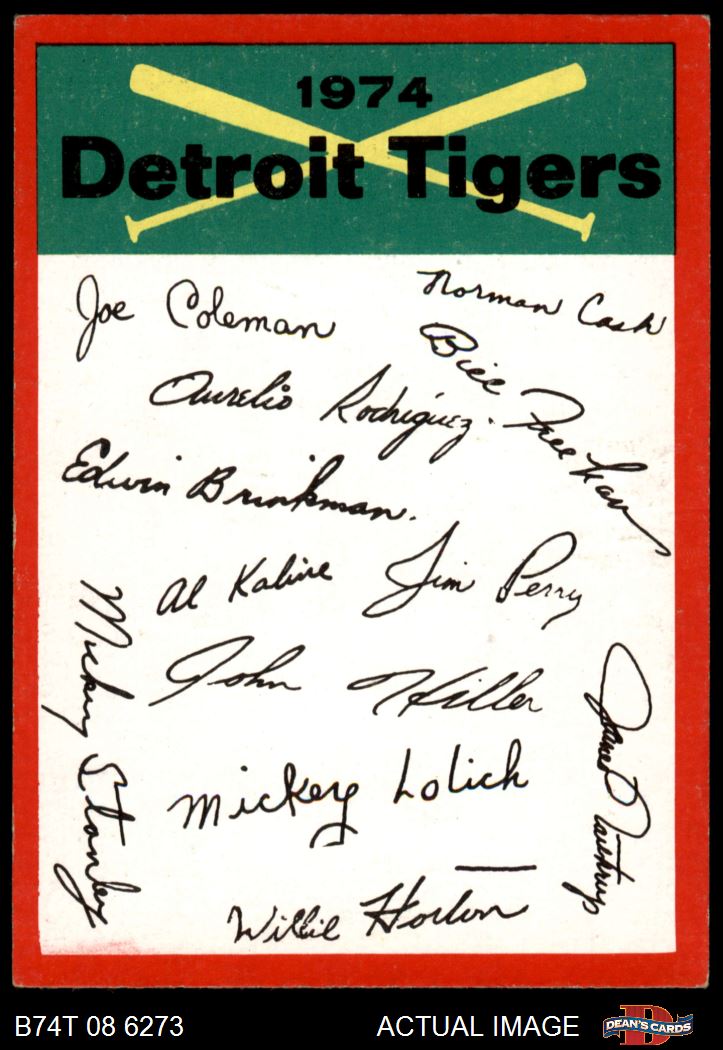 1974
Detroit Tigers
Joe Coleman
Norman Cash
Bill Freehan
Aurelio Rodriguez.
Edwin Brinkman.
Al Kaline
Jim Perry
Mickey Stanley
John Hiller
James Northrup
Mickey Lolich
Willie Horton
B74T 08 6273
ACTUAL IMAGE
D
DEAN'S CARDS